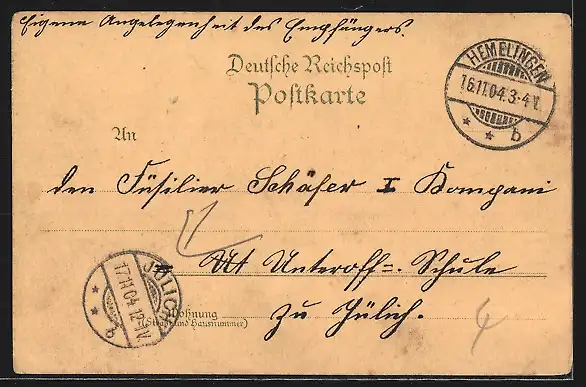 Eigene Angelegenheit des Empfängers.
HEMELINGEN
16.11.04.3-4V.
* * b
Deutsche Reichspost
Postkarte
An
den Füsilier Schäfer I Kompani
Unteroff=. Schule
zu Jülich.
JÜLICH
17.11.04.12-1V.
* * b
Wohnung
(Straße und Hausnummer)